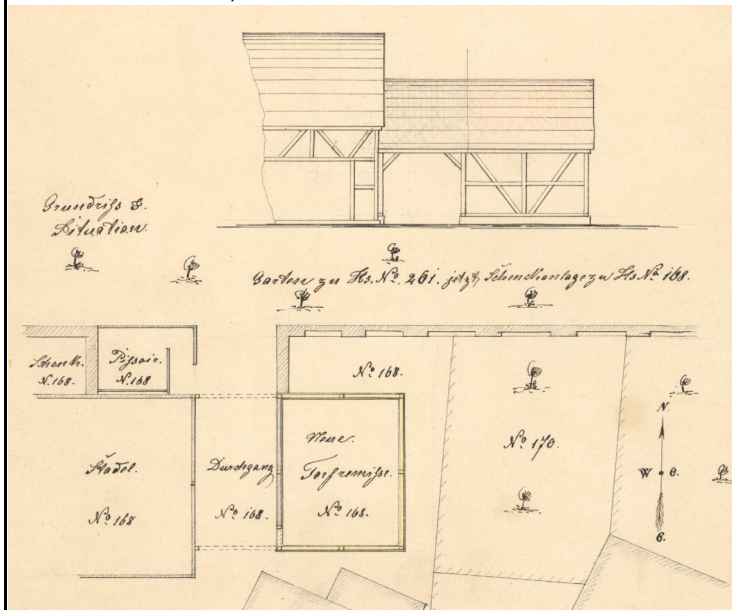 Grundriß &.
Situation.
Garten zu Hs. No. 261. jetzt Schenkanlage zu Hs. No. 168.
Schenk.
N. 168.
Pissoir.
N. 168
No. 168.
Stadel.
No. 168
Durchgang
No. 168.
Neue.
Torfremise.
No. 168.
No. 170.
N.
W O.
S.